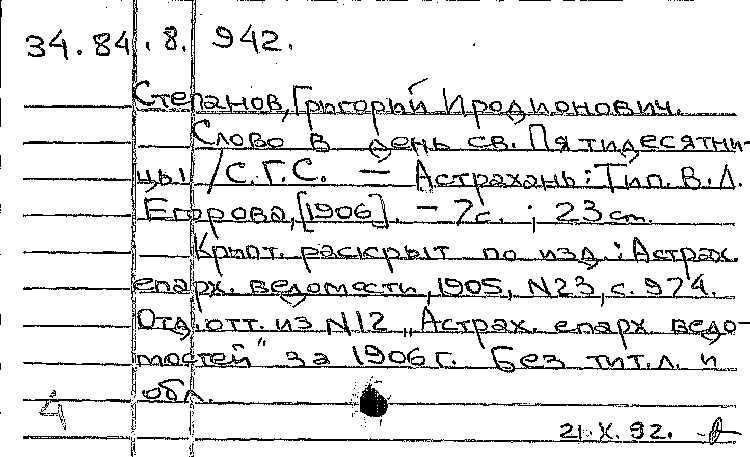 34.84.8. 942.
Степанов, Григорий Иродионович.
Слово в день св. Пятидесятни-
цы / С.Г.С. — Астрахань: Тип. В.Л.
Егорова, [1906]. - 7с. ; 23 cm.
Крипт. раскрыт по изд.: Астрах.
епарх. ведомости, 1905, N23, с. 974.
Отд. отт. из N12 „Астрах. епарх ведо-
мостей“ за 1906г. Без тит.л. и
обл.
4
21.X.92.